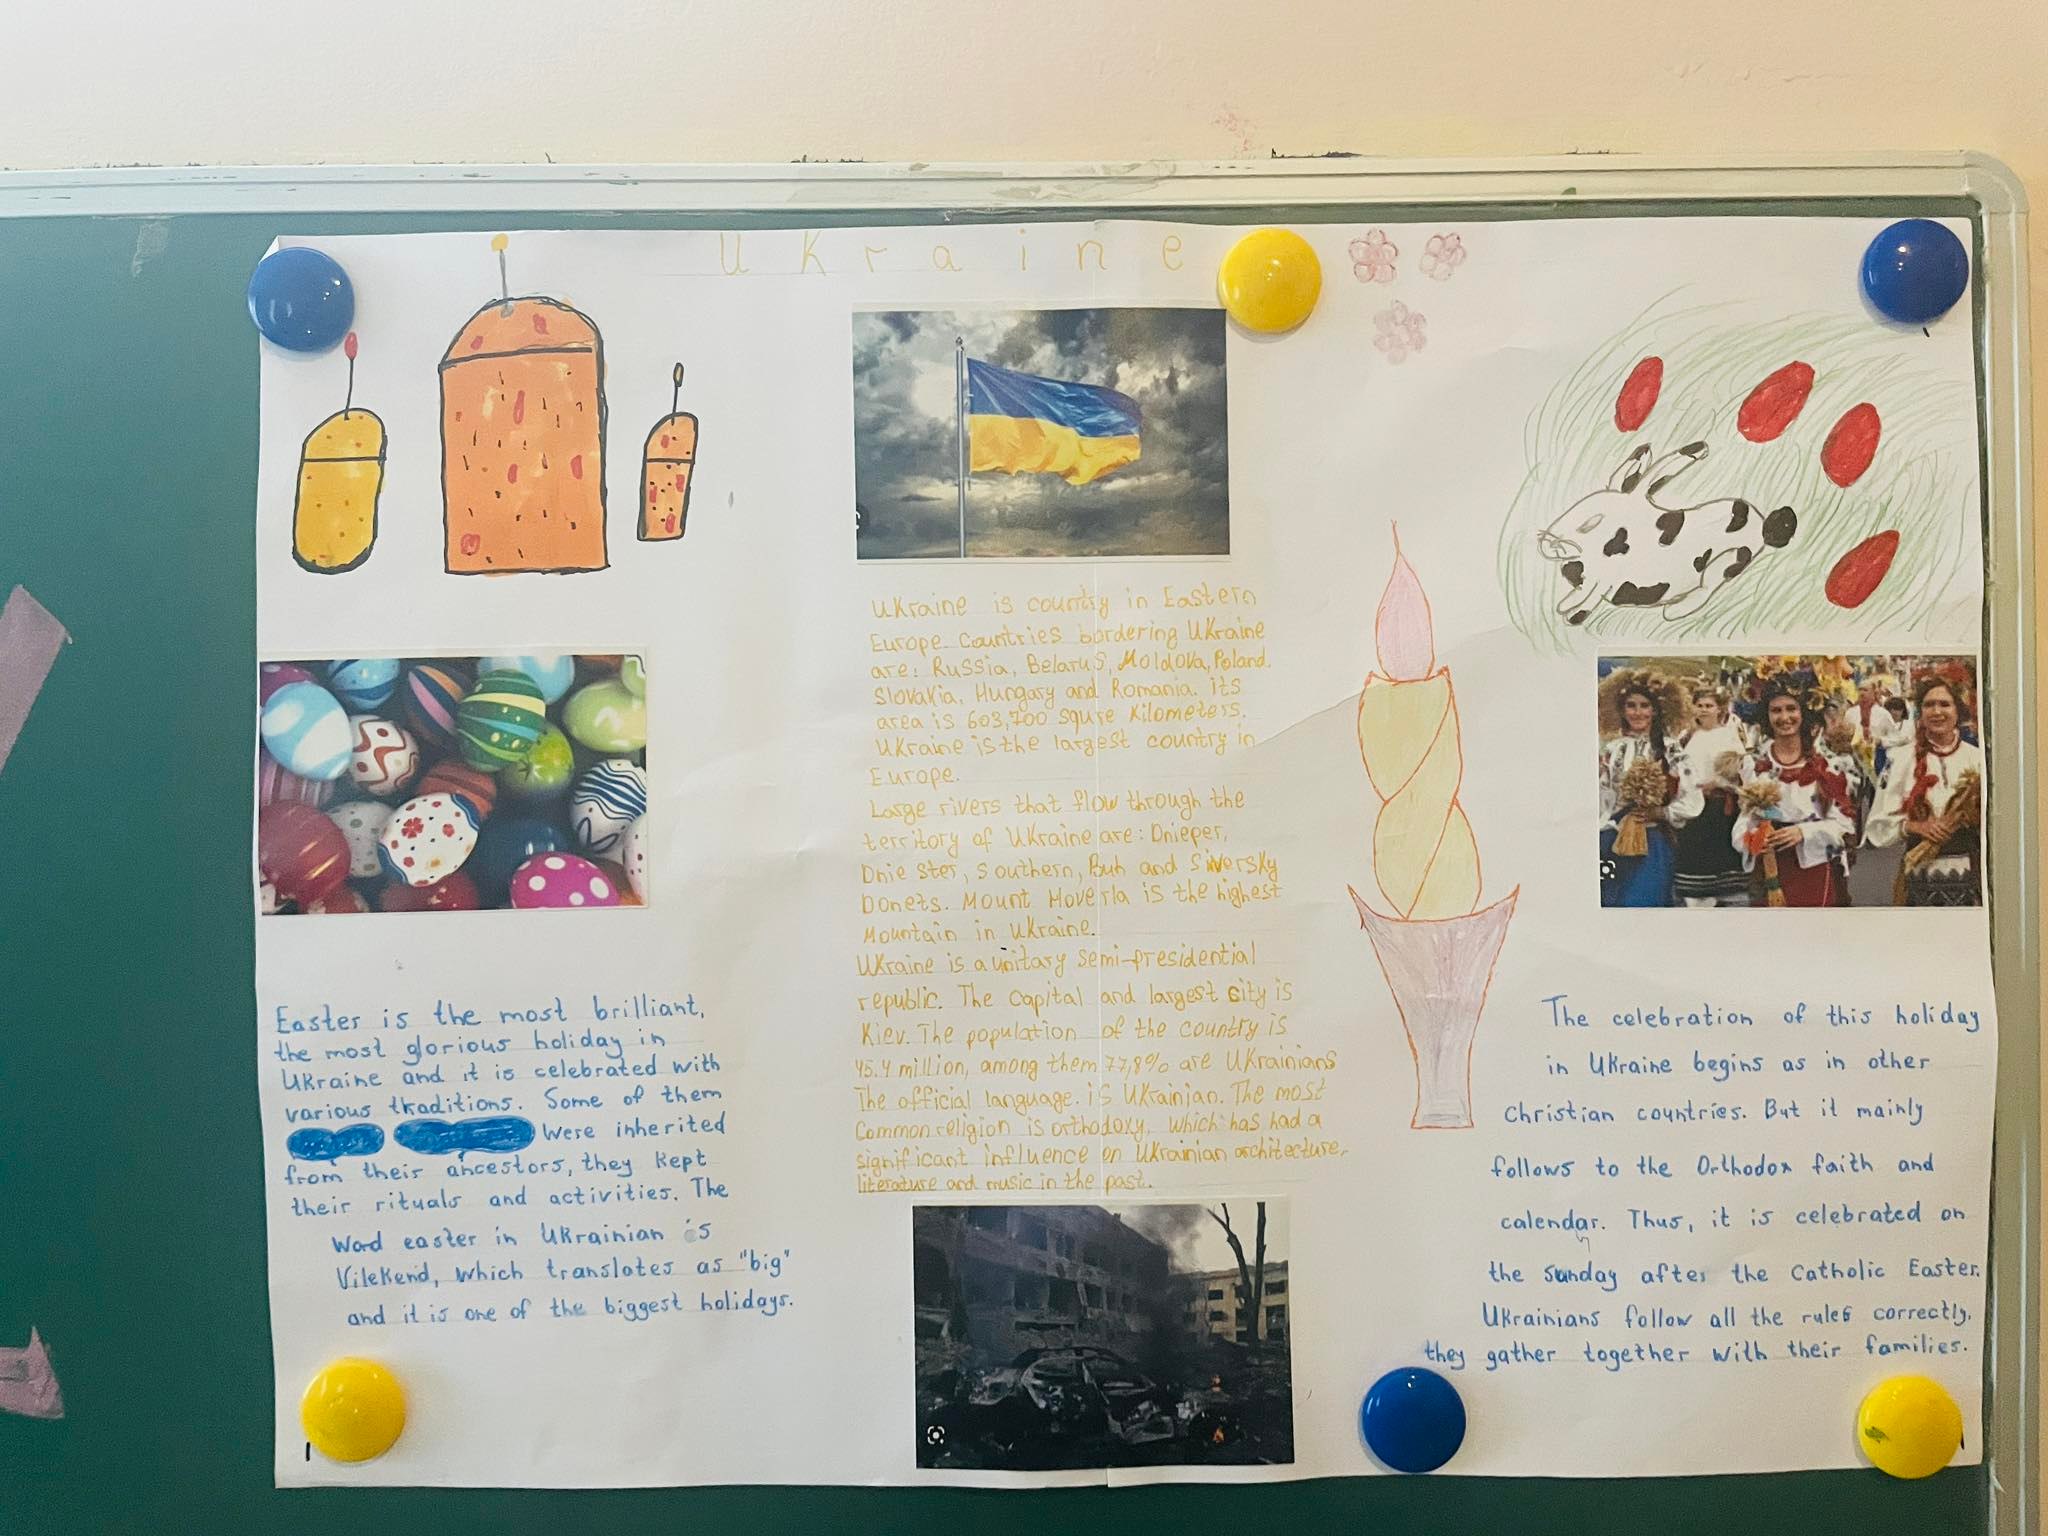 Ukraine
Easter is the most brilliant,
the most glorious holiday in
Ukraine and it is celebrated with
various traditions. Some of them
were inherited
from their ancestors, they kept
their rituals and activities. The
word easter in Ukrainian is
Vilekend, which translates as "big"
and it is one of the biggest holidays.
Ukraine is country in Eastern
Europe. Countries bordering Ukraine
are: Russia, Belarus, Moldova, Poland.
Slovakia, Hungary and Romania. its
area is 603,700 squre kilometers.
Ukraine is the largest country in
Europe.
Large rivers that flow through the
territory of Ukraine are: Dnieper,
Dnie ster, Southern, Buh and Siversky
Donets. Mount Hoverla is the highest
Mountain in Ukraine.
Ukraine is a unitary semi-presidential
republic. The capital and largest city is
Kiev. The population of the country is
45.4 million, among them 77,8% are Ukrainians
The official language. is Ukrainian. The most
Common religion is orthodoxy, which has had a
significant influence on Ukrainian architecture,
literature and music in the past.
The celebration of this holiday
in Ukraine begins as in other
Christian countries. But it mainly
follows to the Orthodox faith and
calendar. Thus, it is celebrated on
the sunday after the Catholic Easter.
Ukrainians follow all the rules correctly.
they gather together with their families.